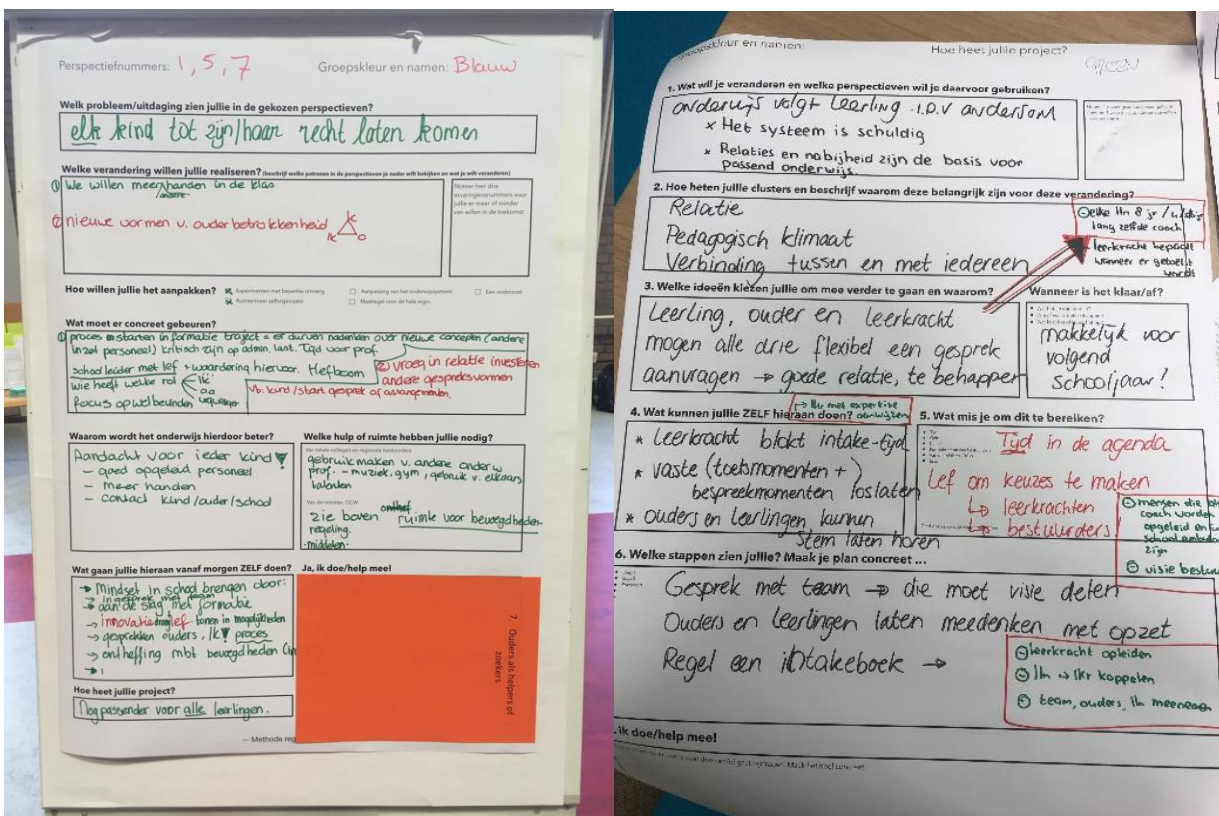 Perspectiefnummers: 1, 5, 7
Groepskleur en namen: Blauw
Welk probleem/uitdaging zien jullie in de gekozen perspectieven?
elk kind tot zijn/haar recht laten komen
Welke verandering willen jullie realiseren? (beschrijf welke patronen in de perspectieven je nader wilt bekijken en wat je wilt veranderen)
① We willen meer/andere handen in de klas
② nieuwe vormen v. ouderbetrokkenheid
k
lk o
Noteer hier drie
ervaringennummers waar
jullie er meer of minder
van willen in de toekomst
Hoe willen jullie het aanpakken?
Experimenten met beperkte omvang
Aanpassing van het onderwijssysteem
Een onderzoek
Ruimte voor zelforganisatie
Maatregel voor de hele regio
Wat moet er concreet gebeuren?
① proces starten informatie traject = er durven nadenken over nieuwe concepten (andere
inzet personeel) kritisch zijn op admin. last. Tijd voor prof.
schoolleider met lef + waardering hiervoor. Hefboom
② vroeg in relatie investeren
andere gespreksvormen
wie heeft welke rol
lk
focus op welbevinden
Vb: kind/start gesprek of arrangementen.
Waarom wordt het onderwijs hierdoor beter?
Aandacht voor ieder kind!
- goed opgeleid personeel
- meer handen
- contact kind/ouder/school
Welke hulp of ruimte hebben jullie nodig?
Van lokale collega's en regionale bestuurders
gebruik maken v. andere onderw
prof. - muziek, gym, gebruik v. elkaars
talenten
Van de minister, OCW
zie boven ontheff ruimte voor bevoegdheden-
regeling.
-middelen-
Wat gaan jullie hieraan vanaf morgen ZELF doen?
→ Mindset in school brengen door:
in gesprek met team
→ aan de slag met formatie
→ innovatiedrang lef tonen in mogelijkheden
→ gesprekken ouders, lk! proces
→ ontheffing mbt bevoegdheden
Ja, ik doe/help mee!
7. Ouders als helpers of
zoekers
Hoe heet jullie project?
Nog passender voor alle leerlingen.
— Methode reg
Groepskleur en namen:
Hoe heet jullie project?
GROEN
1. Wat wil je veranderen en welke perspectieven wil je daarvoor gebruiken?
onderwijs volgt leerling i.p.v andersom
x Het systeem is schuldig
x Relaties en nabijheid zijn de basis voor
passend onderwijs.
2. Hoe heten jullie clusters en beschrijf waarom deze belangrijk zijn voor deze verandering?
Relatie
Pedagogisch klimaat
Verbinding tussen en met iedereen
elke lln 8 jr /
lang zelfde coach
leerkracht bepaalt
wanneer er getoetst
wordt
3. Welke ideeën kiezen jullie om mee verder te gaan en waarom?
Leerling, ouder en leerkracht
mogen alle drie flexibel een gesprek
aanvragen → goede relatie, te behappen
Wanneer is het klaar/af?
makkelijk voor
volgend
schooljaar!
4. Wat kunnen jullie ZELF hieraan doen?
→ lkr met expertise
aanwijzen
* Leerkracht blokt intake-tijd
* vaste (toetsmomenten +)
bespreekmomenten loslaten
* ouders en leerlingen kunnen
stem laten horen
5. Wat mis je om dit te bereiken?
Tijd in de agenda
Lef om keuzes te maken
↳ leerkrachten
↳ bestuurders
mensen die
coach worden
opgeleid en
school
zijn
visie bestuur
6. Welke stappen zien jullie? Maak je plan concreet ...
Gesprek met team → die moet visie delen
Ouders en leerlingen laten meedenken met opzet
Regel een intakeboek →
leerkracht opleiden
lln → lkr koppelen
team, ouders, lln meenemen
ik doe/help mee!